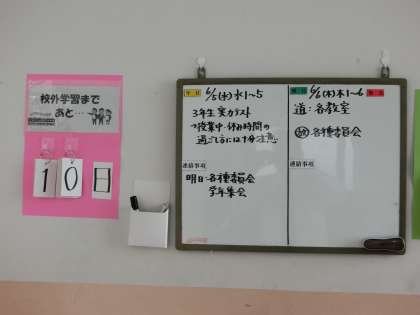 校外学習まで
あと…
10日
6/5(水) 水1~5
3年生 実力テスト
→授業中・休み時間の
過ごし方には十分注意
連絡事項
明日:各種委員会
学年集会
6/6(木) 木1~6
道:各教室
放 各種委員会
連絡事項